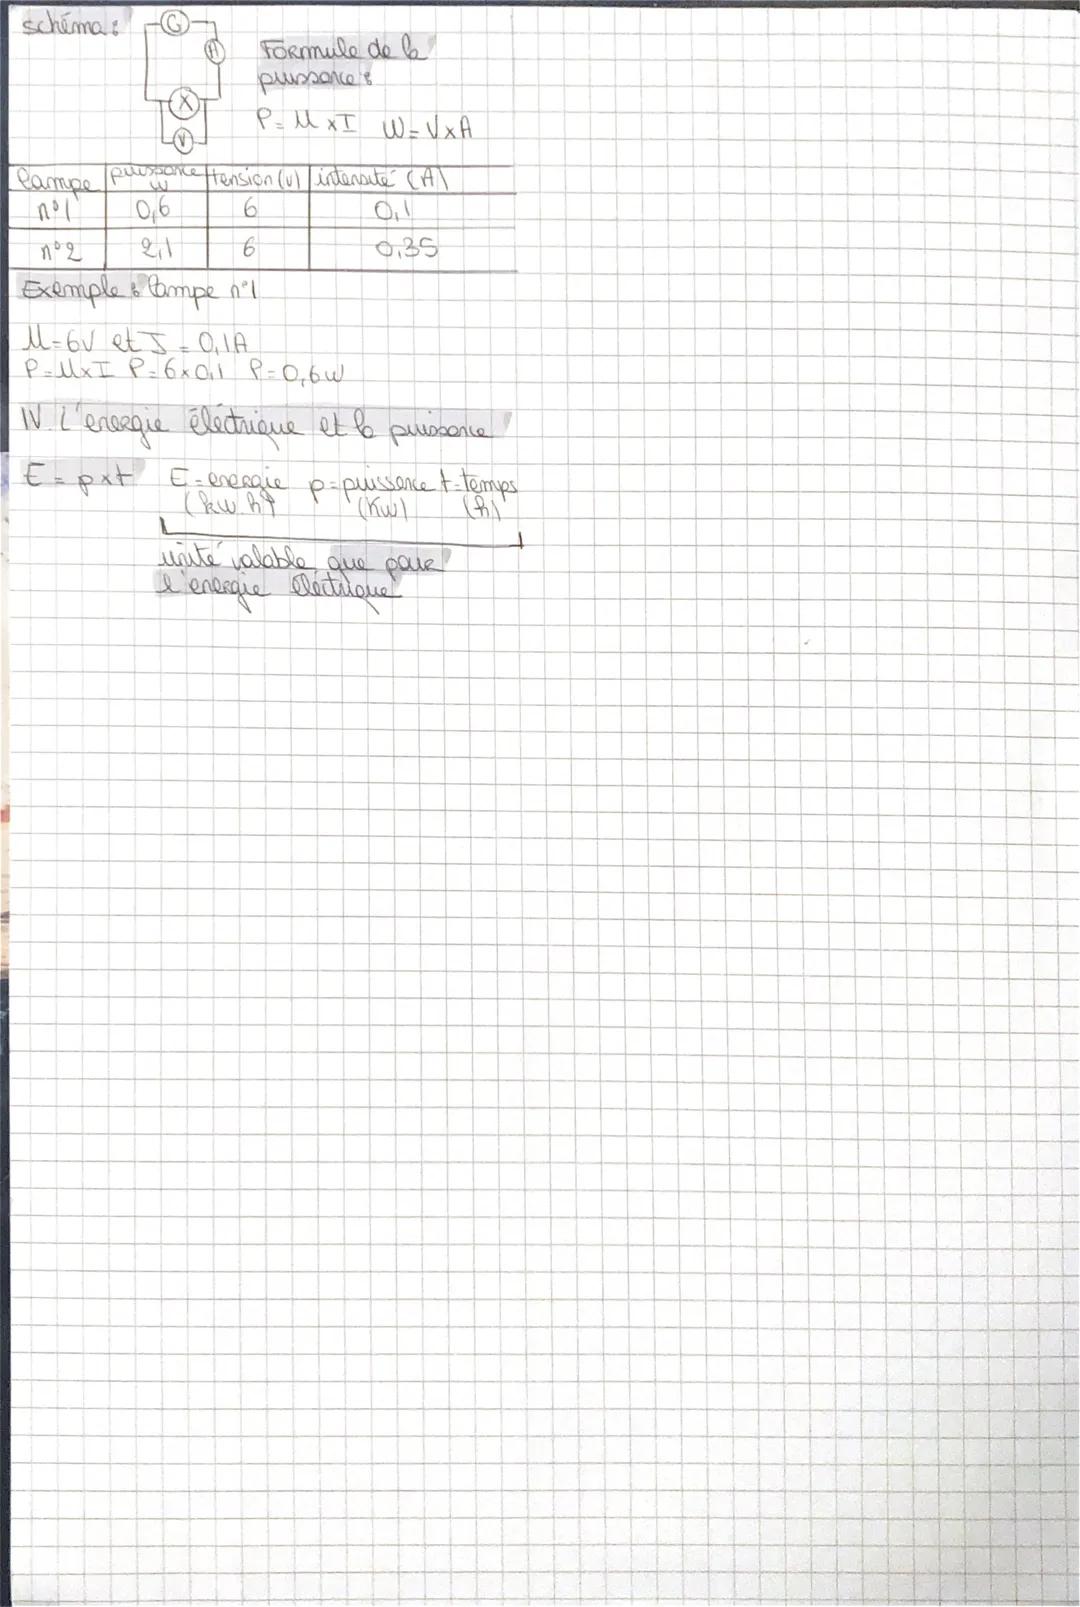 schéma :
G
A
Formule de la
puissance :
X
P = U x I W = V x A
V
lampe puissance W tension (v) intensité (A)
n°1 0,6 6 0,1
n°2 2,1 6 0,35
Exemple : lampe n°1
U = 6V et I = 0,1A
P = U x I P = 6 x 0,1 P = 0,6 w
IV. L'énergie éléctrique et la puissance
E = p x t E = energie p = puissance t = temps
(kw.h) (Kw) (h)
unité valable que pour
l'energie éléctrique